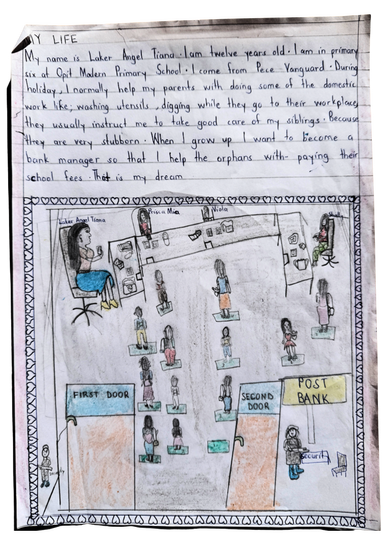 MY LIFE
My name is Laker Angel Tiana. I am twelve years old. I am in primary
six at Opit Modern Primary School. I come from Pece Vanguard. During
holiday, I normally help my parents with doing some of the domestic
work like; washing utensils, digging while they go to their workplaces
they usually instruct me to take good care of my siblings. Because
they are very stubborn. When I grow up I want to become a
bank manager so that I help the orphans with paying their
school fees. That is my dream
Laker Angel Tiana
Priscia Mia
Viola
FIRST DOOR
SECOND
DOOR
POST
BANK
Security